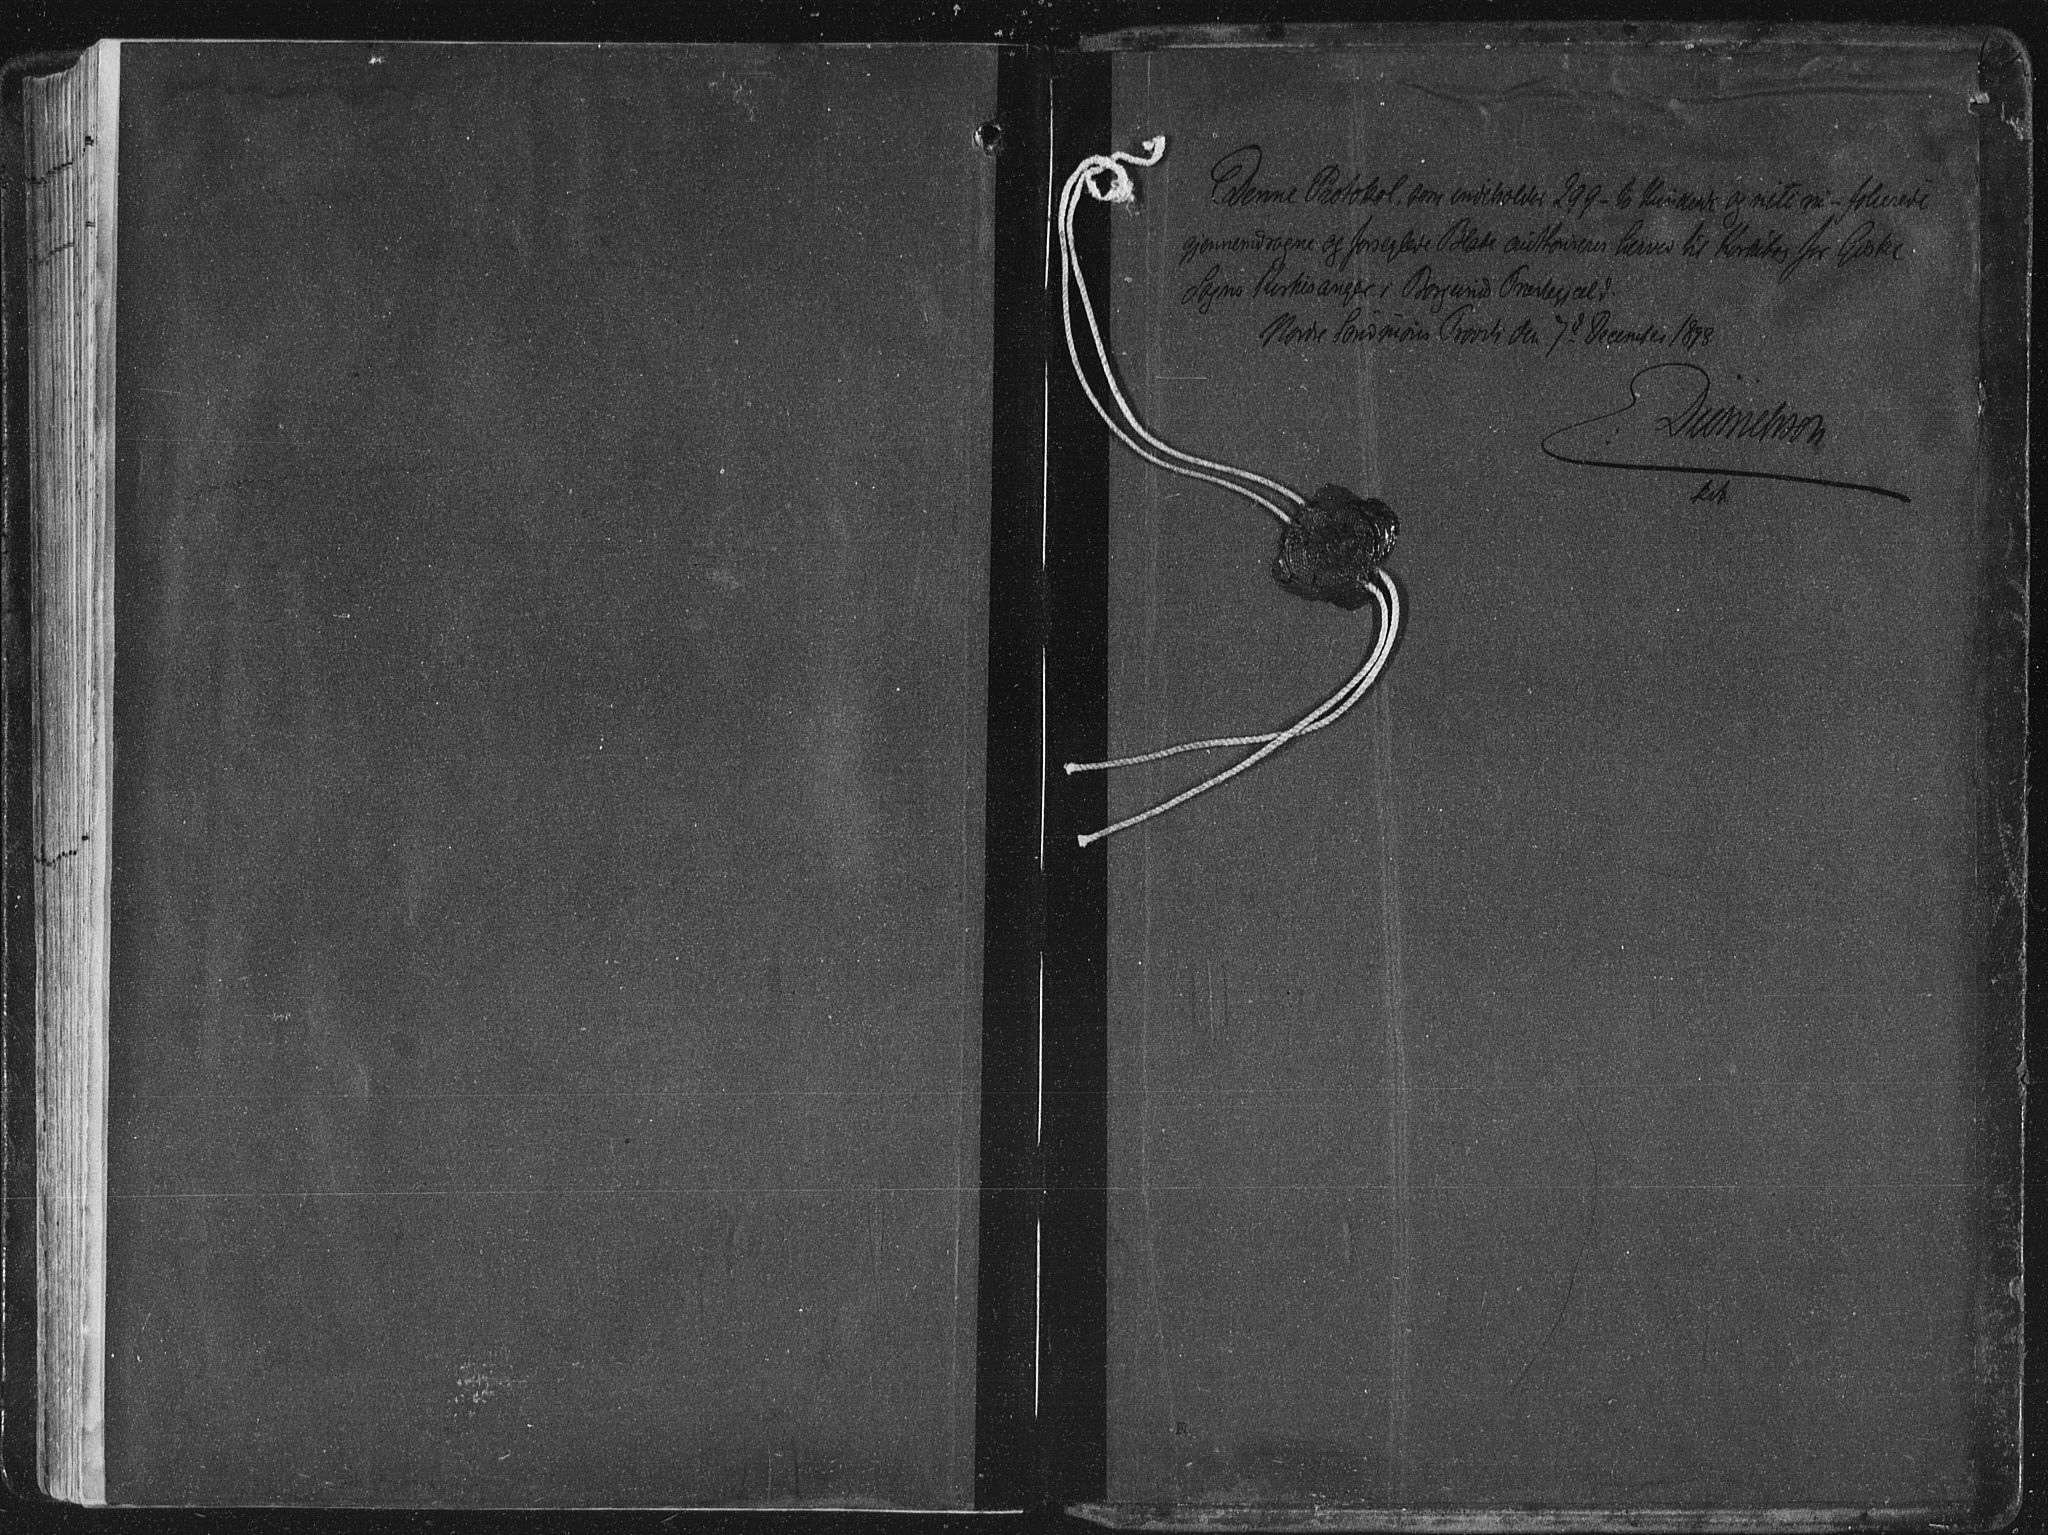 Denne Protokol, som indeholder 299 - to Hundrede og niti ni - folierede
gjennemdragne og forseglede Blade authoriseres herved til Kirkebog for Giske
Sogns Kirkesanger i Borgund Præstegjæld.
Nordre Søndmørs Provsti den 7d December 1878
kst
R